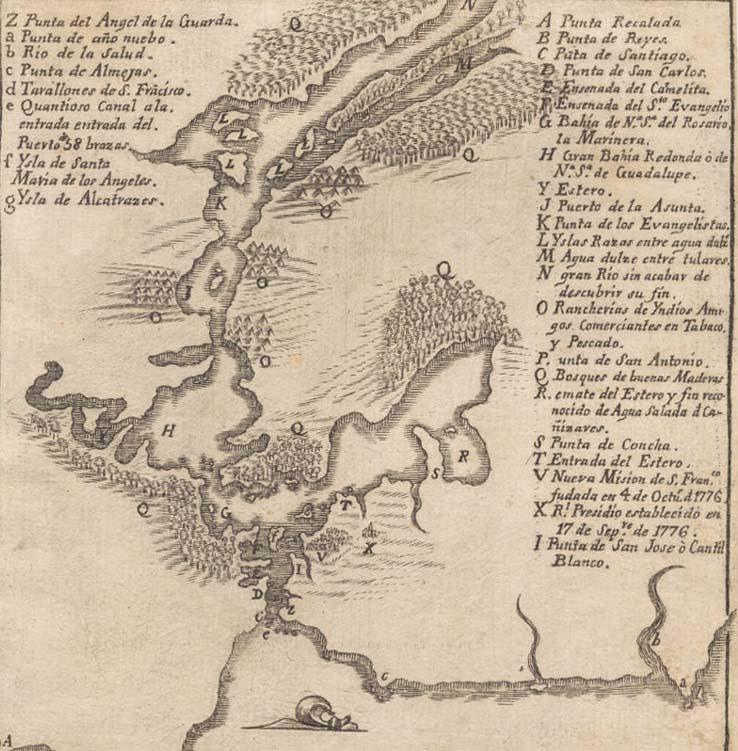 Z Punta del Angel de la Guarda.
a Punta de año nuebo.
b Rio de la Salud.
c Punta de Almejas.
d Tarallones de S. Frácisco.
e Quantioso Canal ala
entrada entrada del
Puerto 58 brazas.
f Ysla de Santa
Maria de los Angeles.
g Ysla de Alcatrazes.
A Punta Recalada
B Punta de Reyes.
C Pūta de Santiago.
D Punta de San Carlos.
E Ensenada del Camelita.
F Ensenada del S.to Evangelio
G Bahía de N.a S.a del Rosario,
la Marinera.
H Gran Bahia Redonda ò de
N.a S.a de Guadalupe.
Y Estero.
J Puerto de la Asunta.
K Punta de los Evangelistas.
L Yslas Razas entre agua dulz.
M Agua dulze entre tulares.
N gran Rio sin acabar de
descubrir su fin.
O Rancherias de Yndios Ami-
gos. Comerciantes en Tabaco,
y Pescado.
P. unta de San Antonio.
Q Bosques de buenas Maderas
R. emate del Estero y fin reco
nocido de Agua Salada d Ca-
ñizares.
S Punta de Concha.
T Entrada del Estero.
V Nueva Mision de S. Fran.co
fudada en 4 de Octū. d 1776
X R.l Presidio establecido en
17 de Sep.re de 1776.
I Punta de San Jose ò Cantil
Blanco.
Q
N
M
L
L
L
L
L
Q
K
O
J
O
O
O
Q
H
Y
Q
R
S
Q
G
T
V
X
I
D
Z
C
e
c
b
a
A